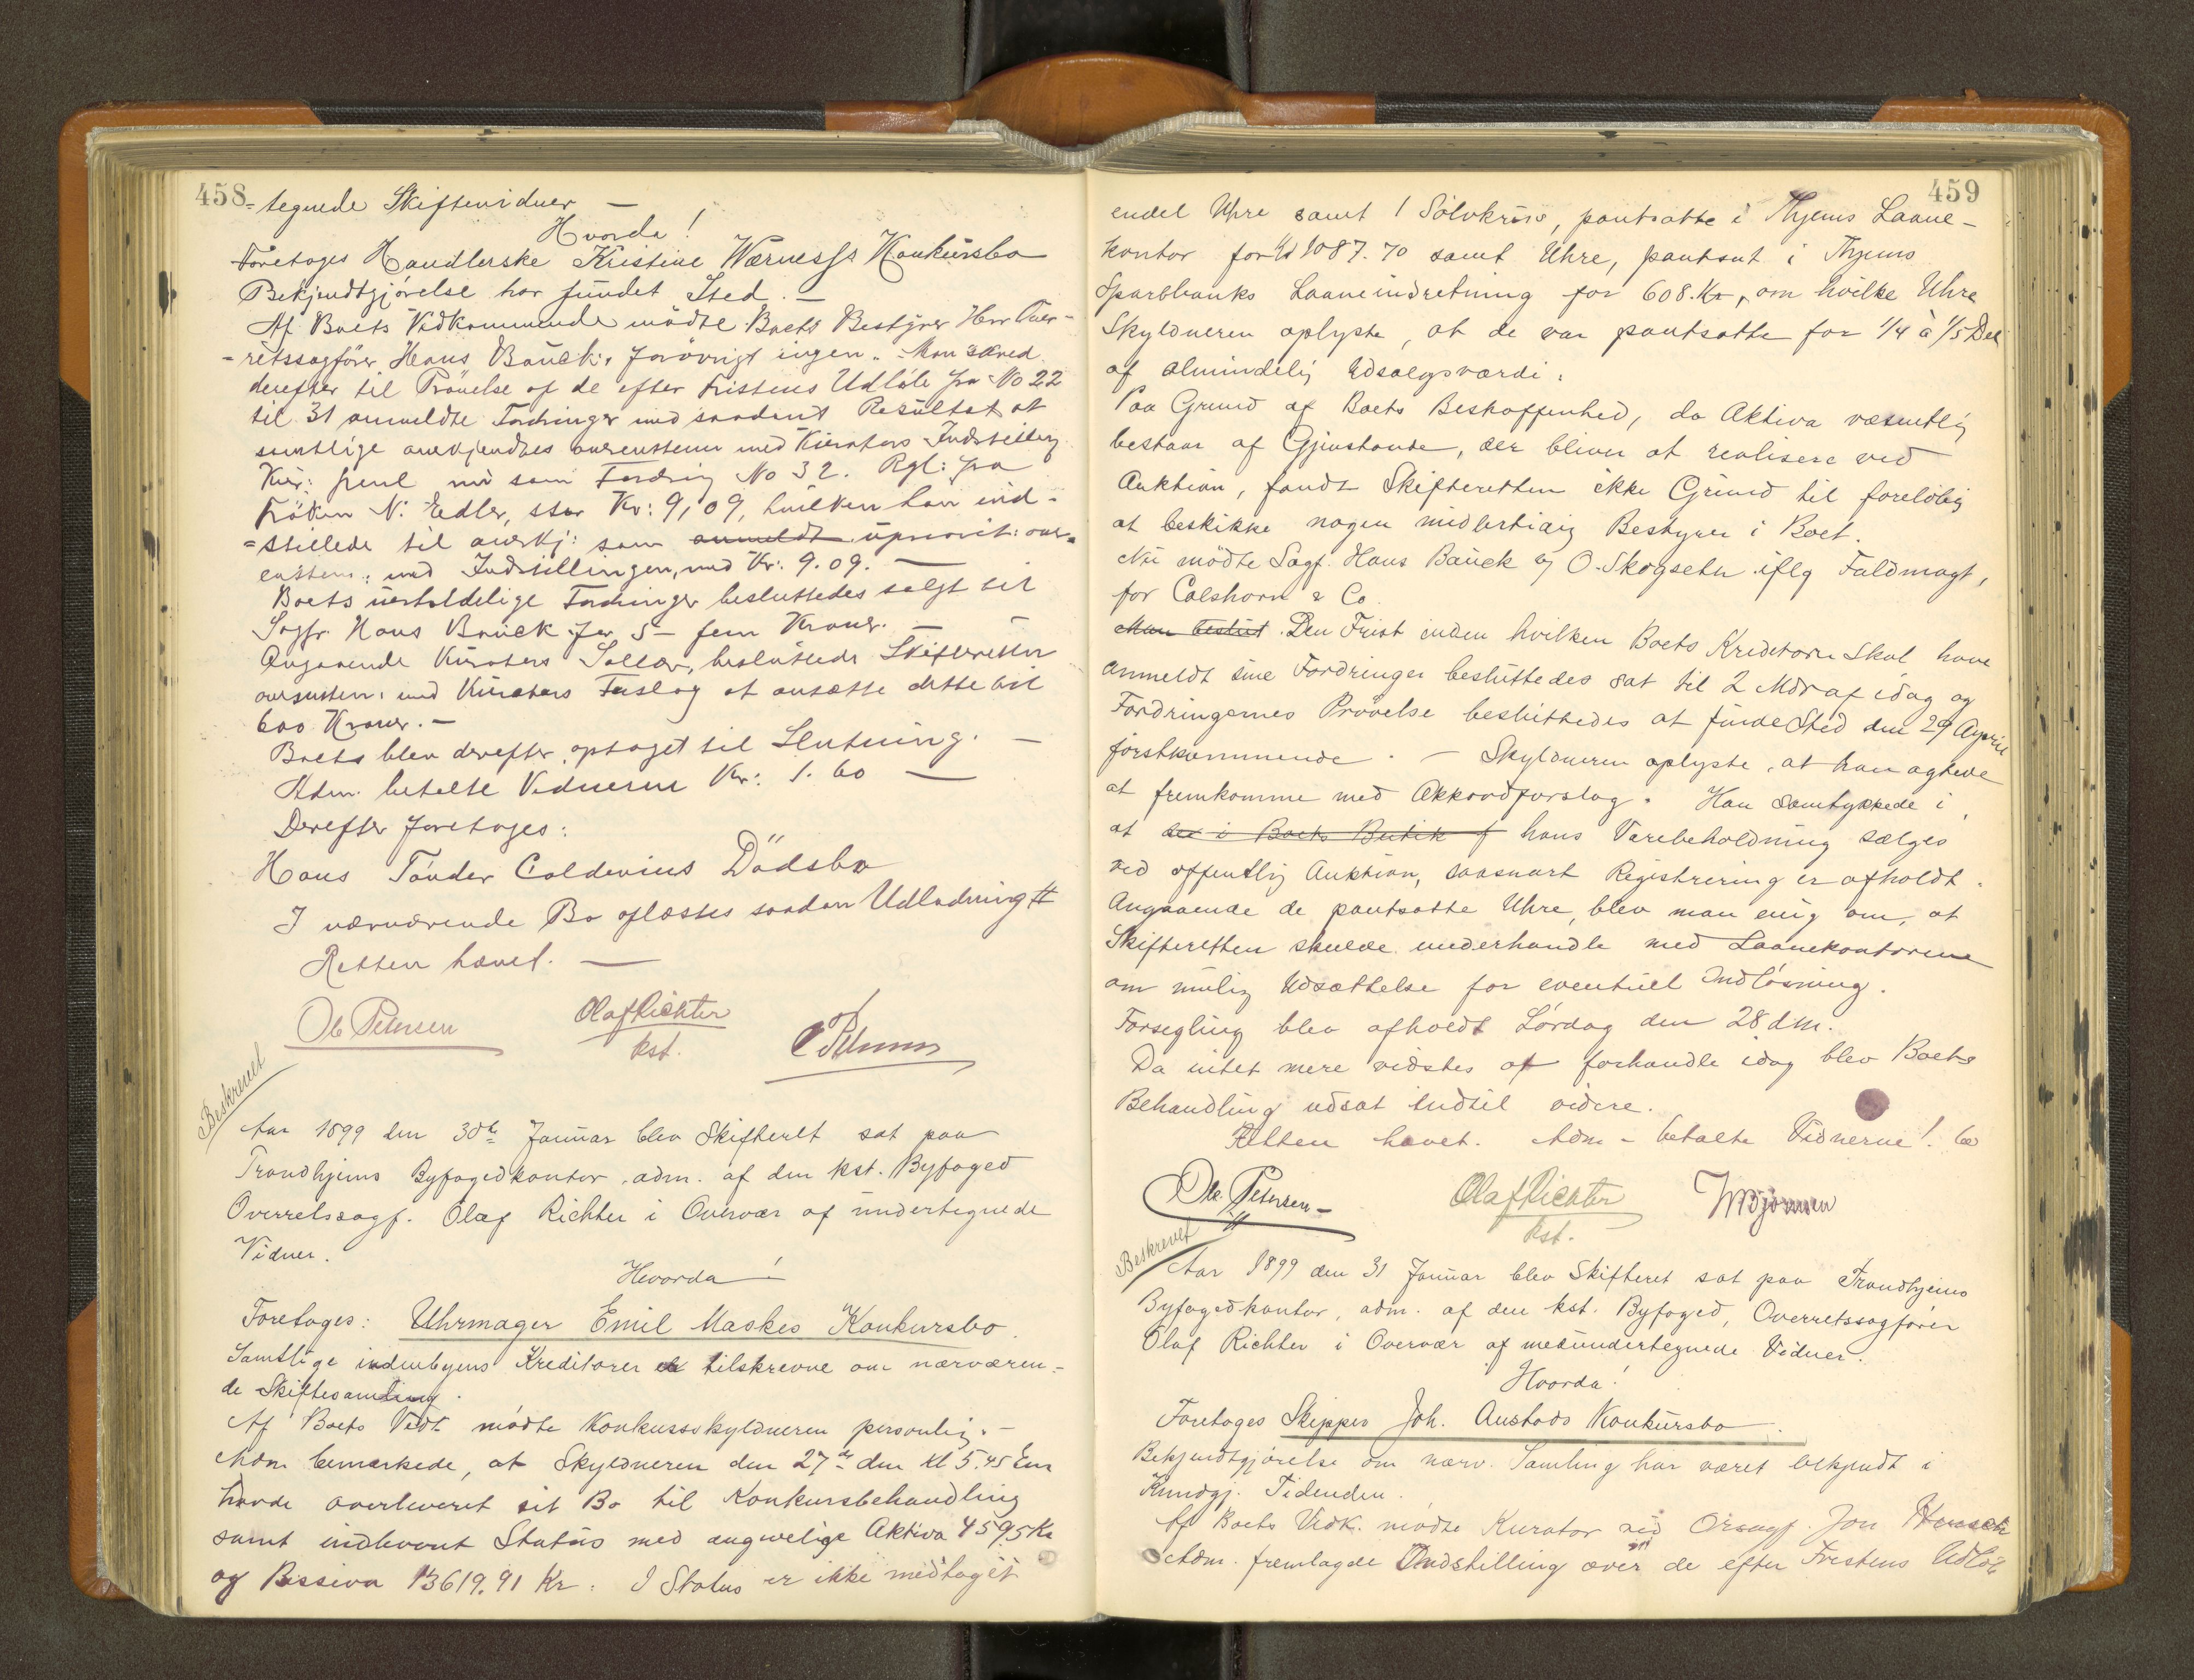 458
-tegnede Skiftevidner —
Hvorda!
Foretages Handlerske Kristine Wærness's Konkursbo
Bekjendtgjörelse har fundet Sted. —
Af Boets Vedkommende mödte Boets Bestyrer Herr Over-
-retssagförer Hans Bauck, forövrigt ingen. Man skred
derefter til Prövelse af de efter Fristens Udlöb fra No 22
til 31 anmeldte Fordringer med saadant Resultat at
samtlige anerkjendtes overenstem med Kurators Indstilling
Kur: freml nu som Fordring No 32. Rgl: fra
Fröken N. Edler, stor Kr: 9,09, hvilken han ind-
=stillede til anerkj: som anmeldt uprivit: over=
enstem: med Indstillingen, med Kr. 9.09. —
Boets uerholdelige Fordringer besluttedes solgt til
Sagfr. Hans Bauck for 5 — fem Kroner. —
Angaaende Kurators Sallær, besluttede Skifteretten
overensstem: med Kurators Forslag at ansætte dette til
600 Kroner. —
Boets blev derefter optaget til Slutning. —
Adm. betalte Vidnerne Kr: 1.60 —
Derefter foretoges:
Hans Tönder Coldevins Dödsbo
I nærværende Bo oplæstes saadan Udlodning #
Retten hævet. —
Ole Petersen Olaf Richter
kst.
Beskrevet
Aar 1899 den 30te Januar blev Skifteret sat paa
Trondhjems Byfogedkontor, adm. af den kst. Byfoged
Overretssagf. Olaf Richter i Overvær af undertegnede
Vidner.
Hvorda!
Foretages: Uhrmager Emil Maskes Konkursbo.
Samtlige indenbyens Kreditorer er tilskrevne om nærværen-
de Skiftesamling.
Af Boets Vedk. mödte Konkursskyldneren personlig. —
Adm bemærkede, at Skyldneren den 27de dm Kl 5.45 Em
havde overleveret sit Bo til Konkursbehandling
samt indleveret Status med angivelige Aktiva 4595 Kr
og Passiva 13619.91 Kr: I Status er ikke medtaget
459
endel Uhre samt 1 Sölvkrus, pantsatte i Thjems Laane-
kontor for Kr 1087.70 samt Uhre, pantsat i Thjems
Sparebanks Laaneindretning for 608. Kr, om hvilke Uhre
Skyldneren oplyste, at de var pantsatte for 1/4 à 1/5 Del
af almindelig Udsalgsværdi.
Paa Grund af Boets Beskaffenhed, da Aktiva væsentlig
bestaar af Gjenstande, der bliver at realisere ved
Auktion, fandt Skifteretten ikke Grund til forelöbig
at beskikke nogen midlertidig Bestyrer i Boet.
Nu mödte Sagf. Hans Bauck og O. Skogseth iflg Fuldmagt,
for Colshorn & Co.
Man beslut. Den Frist inden hvilken Boets Kreditorer skal have
anmeldt sine Fordringer besluttedes sat til 2 Mdr af idag og
Fordringernes Prövelse besluttedes at finde Sted den 29 April
förstkommende. — Skyldneren oplyste, at han agtede
at fremkomme med Akkordforslag. Han samtykkede i
at der i Boets Butik f hans Varebeholdning sælges
ved offentlig Auktion, saasnart Registrering er afholdt.
Angaaende de pantsatte Uhre, blev man enig om, at
Skifteretten skulde underhandle med Laanekontorerne
om mulig Udsættelse for eventuel Indlösning.
Forsegling blev afholdt Lördag den 28 dm.
Da intet mere vidstes at forhandle idag blev Boets
Behandling udsat indtil videre.
Retten hævet. Adm. betalte Vidnerne 1.60
Ole Petersen — Olaf Richter
kst.
Beskrevet
Aar 1899 den 31 Januar blev Skifteret sat paa Trondhjems
Byfogedkontor, adm. af den kst. Byfoged, Overretssagförer
Olaf Richter i Overvær af medundertegnede Vidner.
Hvorda!
Foretages Skipper Joh. Austads Konkursbo.
Bekjendtgjörelse om nærv. Samling har været bekjendt i
Kundgj. Tidenden.
Af Boets Vedk. mödte Kurator ved Orsagf. Jon
Adm. fremlagde Indstilling over de efter Fristens Udlöb